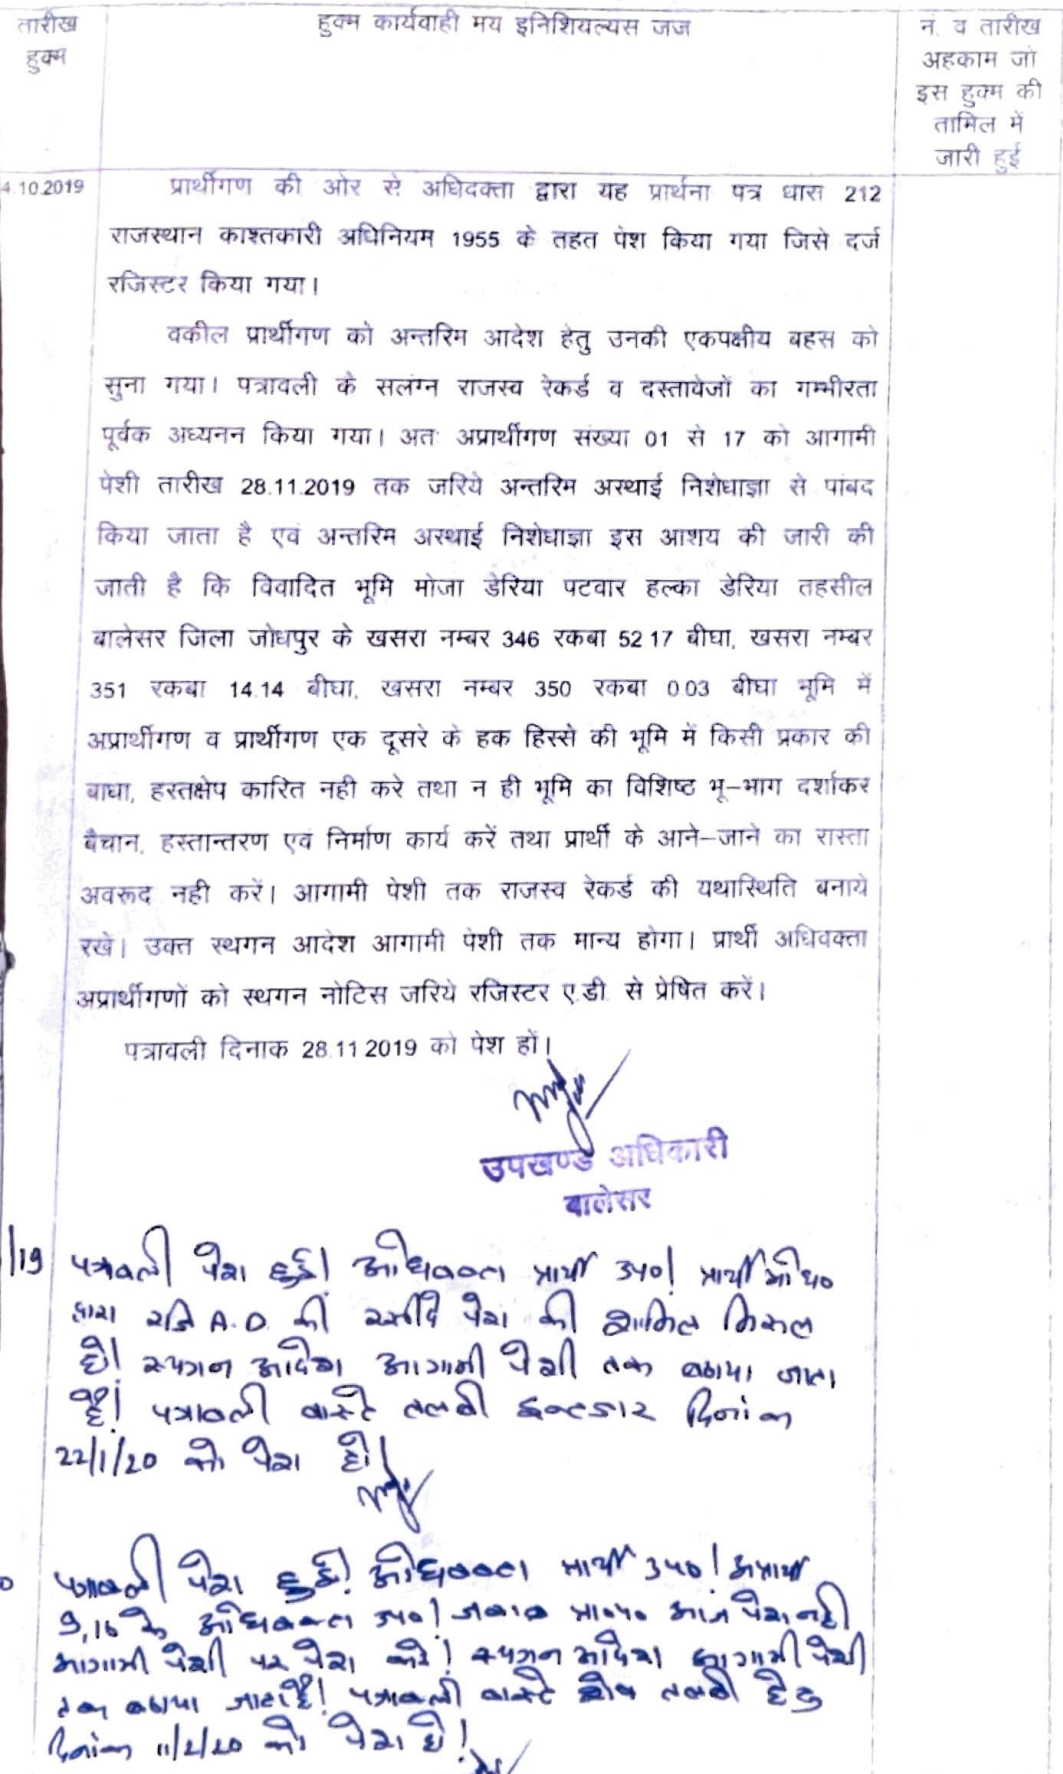 तारीख
हुक्म
हुक्म कार्यवाही मय इनिशियल्यस जज
नं. व तारीख
अहकाम जो
इस हुक्म की
तामिल में
जारी हुई
4.10.2019
प्रार्थीगण की ओर से अधिदक्ता द्वारा यह प्रार्थना पत्र धारा 212
राजस्थान काश्तकारी अधिनियम 1955 के तहत पेश किया गया जिसे दर्ज
रजिस्टर किया गया।
वकील प्रार्थीगण को अन्तरिम आदेश हेतु उनकी एकपक्षीय बहस को
सुना गया। पत्रावली के सलंग्न राजस्व रेकर्ड व दस्तावेजों का गम्भीरता
पूर्वक अध्यनन किया गया। अतः अप्रार्थीगण संख्या 01 से 17 को आगामी
पेशी तारीख 28.11.2019 तक जरिये अन्तरिम अस्थाई निशेधाज्ञा से पांबद
किया जाता है एवं अन्तरिम अस्थाई निशेधाज्ञा इस आशय की जारी की
जाती है कि विवादित भूमि मोजा डेरिया पटवार हल्का डेरिया तहसील
बालेसर जिला जोधपुर के खसरा नम्बर 346 रकबा 52.17 बीघा, खसरा नम्बर
351 रकबा 14.14 बीघा, खसरा नम्बर 350 रकबा 0.03 बीघा भूमि में
अप्रार्थीगण व प्रार्थीगण एक दूसरे के हक हिस्से की भूमि में किसी प्रकार की
बाधा, हस्तक्षेप कारित नही करे तथा न ही भूमि का विशिष्ट भू-भाग दर्शाकर
बैचान, हस्तान्तरण एवं निर्माण कार्य करें तथा प्रार्थी के आने-जाने का रास्ता
अवरूद नही करें। आगामी पेशी तक राजस्व रेकर्ड की यथास्थिति बनाये
रखे। उक्त स्थगन आदेश आगामी पेशी तक मान्य होगा। प्रार्थी अधिवक्ता
अप्रार्थीगणों को स्थगन नोटिस जरिये रजिस्टर ए.डी. से प्रेषित करें।
पत्रावली दिनाक 28.11.2019 को पेश हों।
उपखण्ड अधिकारी
बालेसर
/19 पत्रावली पेश हुई। अधिवक्ता प्रार्थी उप०। प्रार्थी अधि०
द्वारा रजि A.D. की रसीदे पेश की शामिल मिसल
हो। स्थगन आदेश आगामी पेशी तक बढाया जाता
है। पत्रावली वास्ते तलबी इन्तजार दिनांक
22/1/20 को पेश हो।
पत्रावली पेश हुई। अधिवक्ता प्रार्थी उप०। अप्रार्थी
9,16 के अधिवक्ता उप०। जवाब प्रा०प० आज पेश नही
आगामी पेशी पर पेश करे। स्थगन आदेश आगामी पेशी
तक बढाया जाता है। पत्रावली वास्ते शेष तलबी हेतु
दिनांक 11/2/20 को पेश हो।